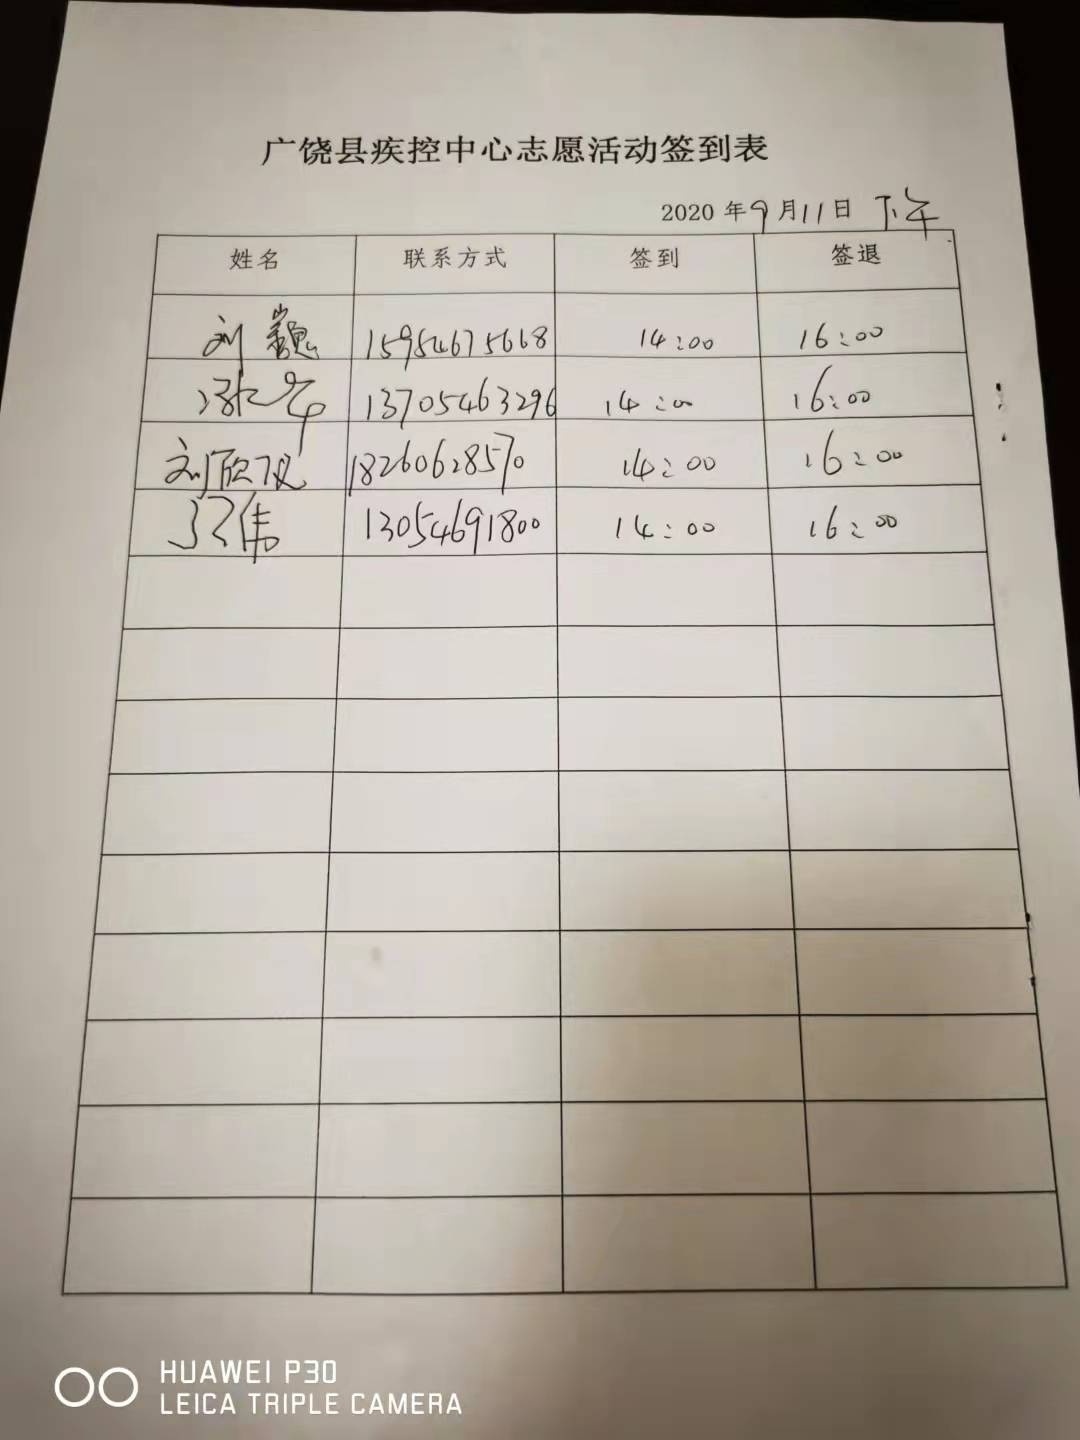 广饶县疾控中心志愿活动签到表
2020年9月11日 下午
姓名 联系方式 签到 签退
刘巍 15954675668 14:00 16:00
13705463296 14:00 16:00
刘欣仪 18260628570 14:00 16:00
伟 13054691800 14:00 16:00
HUAWEI P30
LEICA TRIPLE CAMERA